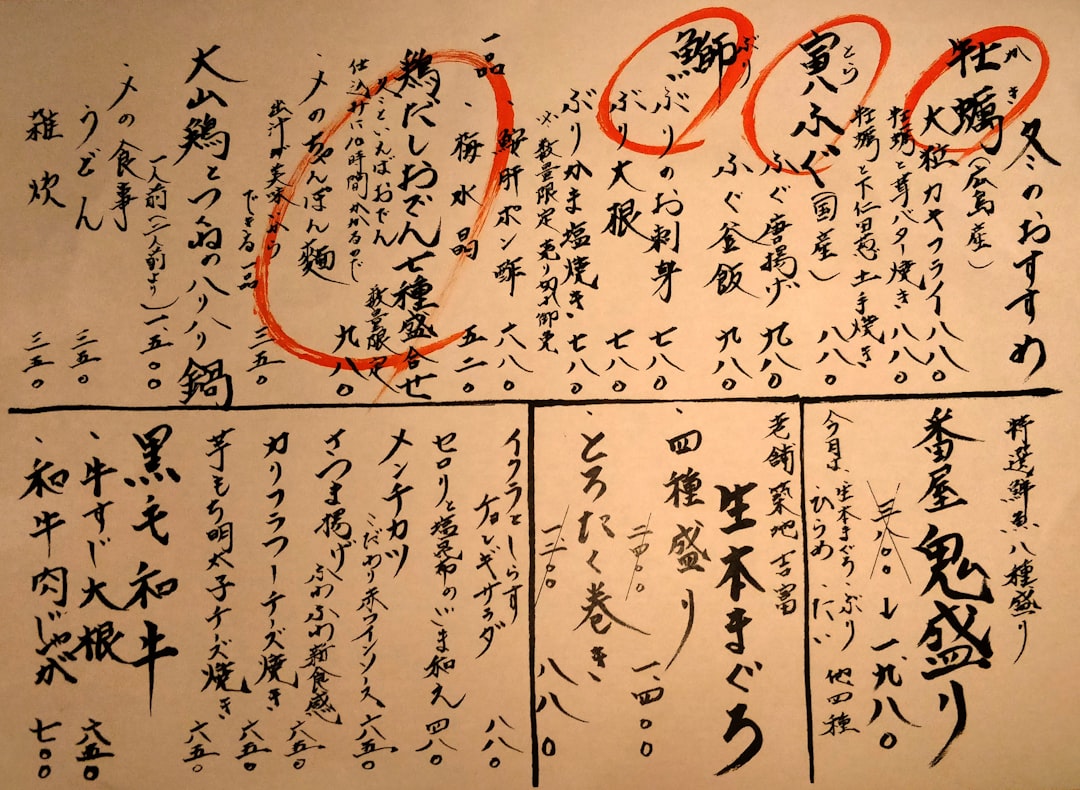 冬のおすすめ
牡蠣(広島産)
かき
大粒カキフライ 八八〇
牡蠣と茸バター焼き 八八〇
牡蠣と下仁田葱土手焼き 八八〇
寅八ふぐ(国産)
とら
ふぐ唐揚げ 九八〇
ふぐ釜飯 九八〇
鰤
ぶり
ぶりのお刺身 七八〇
ぶり大根 七八〇
ぶりかま塩焼き 七八〇
※数量限定売り切れ御免
一品
、鮟肝ポン酢 六八〇
、梅水晶 五二〇
鶏だしおでん七種盛合せ
冬といえばおでん
仕込みに10時間かかるので 数量限定
九八〇
、〆のちゃんぽん麺
出汁が美味いから
できる一品
三五〇
大山鶏とつくねのハリハリ鍋
一人前(二人前より)一、五〇〇
、〆の食事
うどん 三五〇
雑炊 三五〇
特選鮮魚八種盛り
番屋 鬼盛り
三、八〇〇→一、九八〇
今月は、生本まぐろ、ぶり
ひらめ、たい 他四種
老舗築地吉富
生本まぐろ
、四種盛り 二、四〇〇 一、四〇〇
、とろたく巻き 一、二〇〇 八八〇
イクラとしらす
チョレギサラダ 八八〇
セロリと塩昆布のごま和え 四八〇
メンチカツ
こだわり赤ワインソース 六五〇
さつま揚げ ふわふわ新食感 六五〇
カリフラワーチーズ焼き 六五〇
芋もち明太子チーズ焼き 六五〇
黒毛和牛
、牛すじ大根 六五〇
、和牛肉じゃが 七〇〇